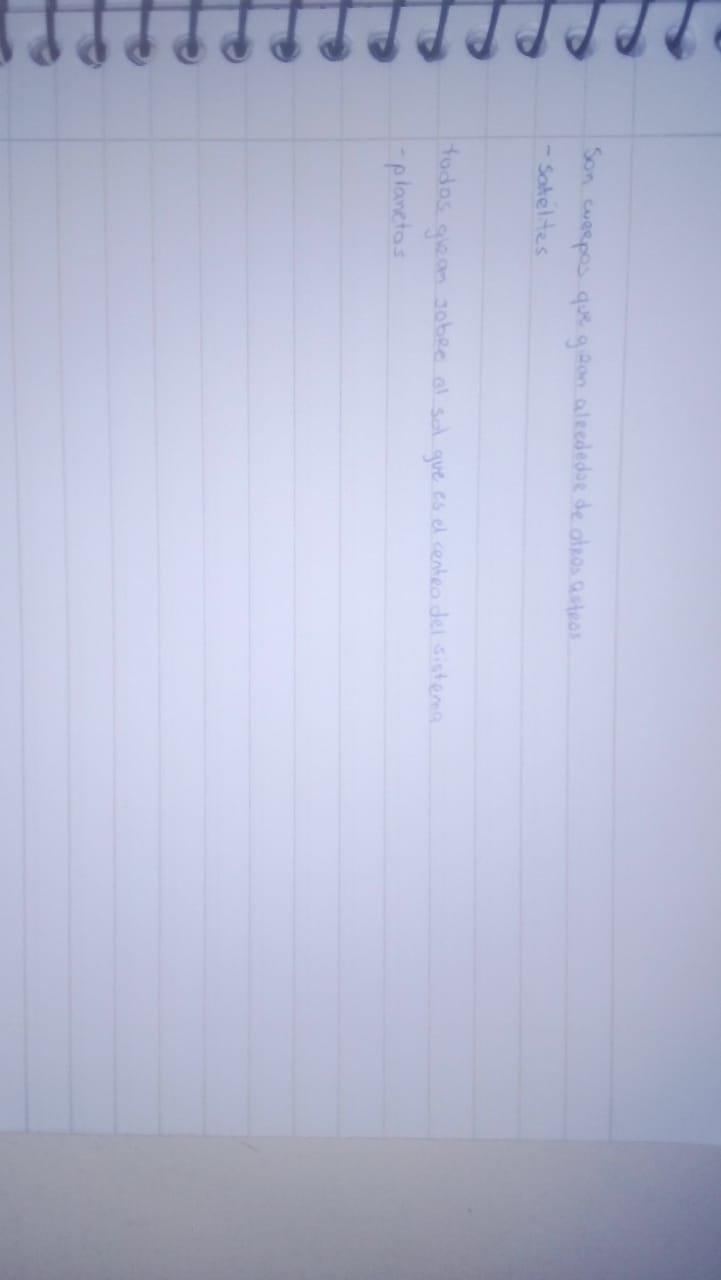 Son cuerpos que giran alrededor de otros astros
- satéltes
todos giran sobre al sol que es el centro del sistema
- planetas